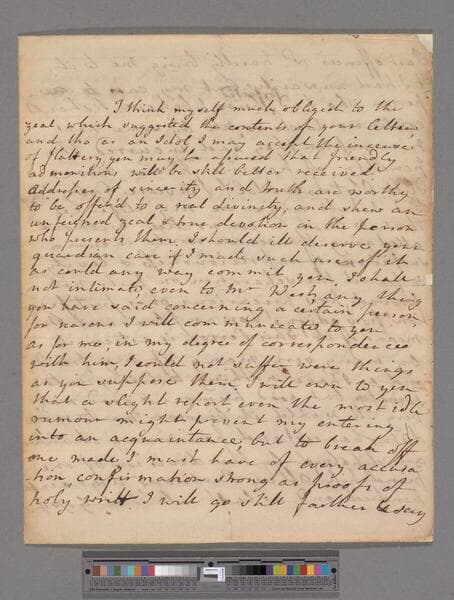 I think myself much obliged to the
zeal which suggested the contents of your letter,
and tho' as an Idol I may accept the incense
of flattery, you may be assured that friendly
admonitions will be still better received
Addresses of sincerity and truth are worthy
to be offer'd to a real divinity, and shew an
unfeigned zeal & true devotion in the person
who presents them. I should ill deserve your
guardian care if I made such use of it
as could any way commit you, I shall
not intimate, even to Mr West any thing
you have said concerning a certain person,
for reasons I will communicate to you
as for me, in my degree of correspondence
with him, I could not suffer were things
as you suppose them, I will own to you
that a slight report even the most idle
rumour might prevent my entering
into an acquaintance, but to break off
one made I must have of every accusa
tion, confirmation strong as proofs of
holy writt. I will go still farther & say